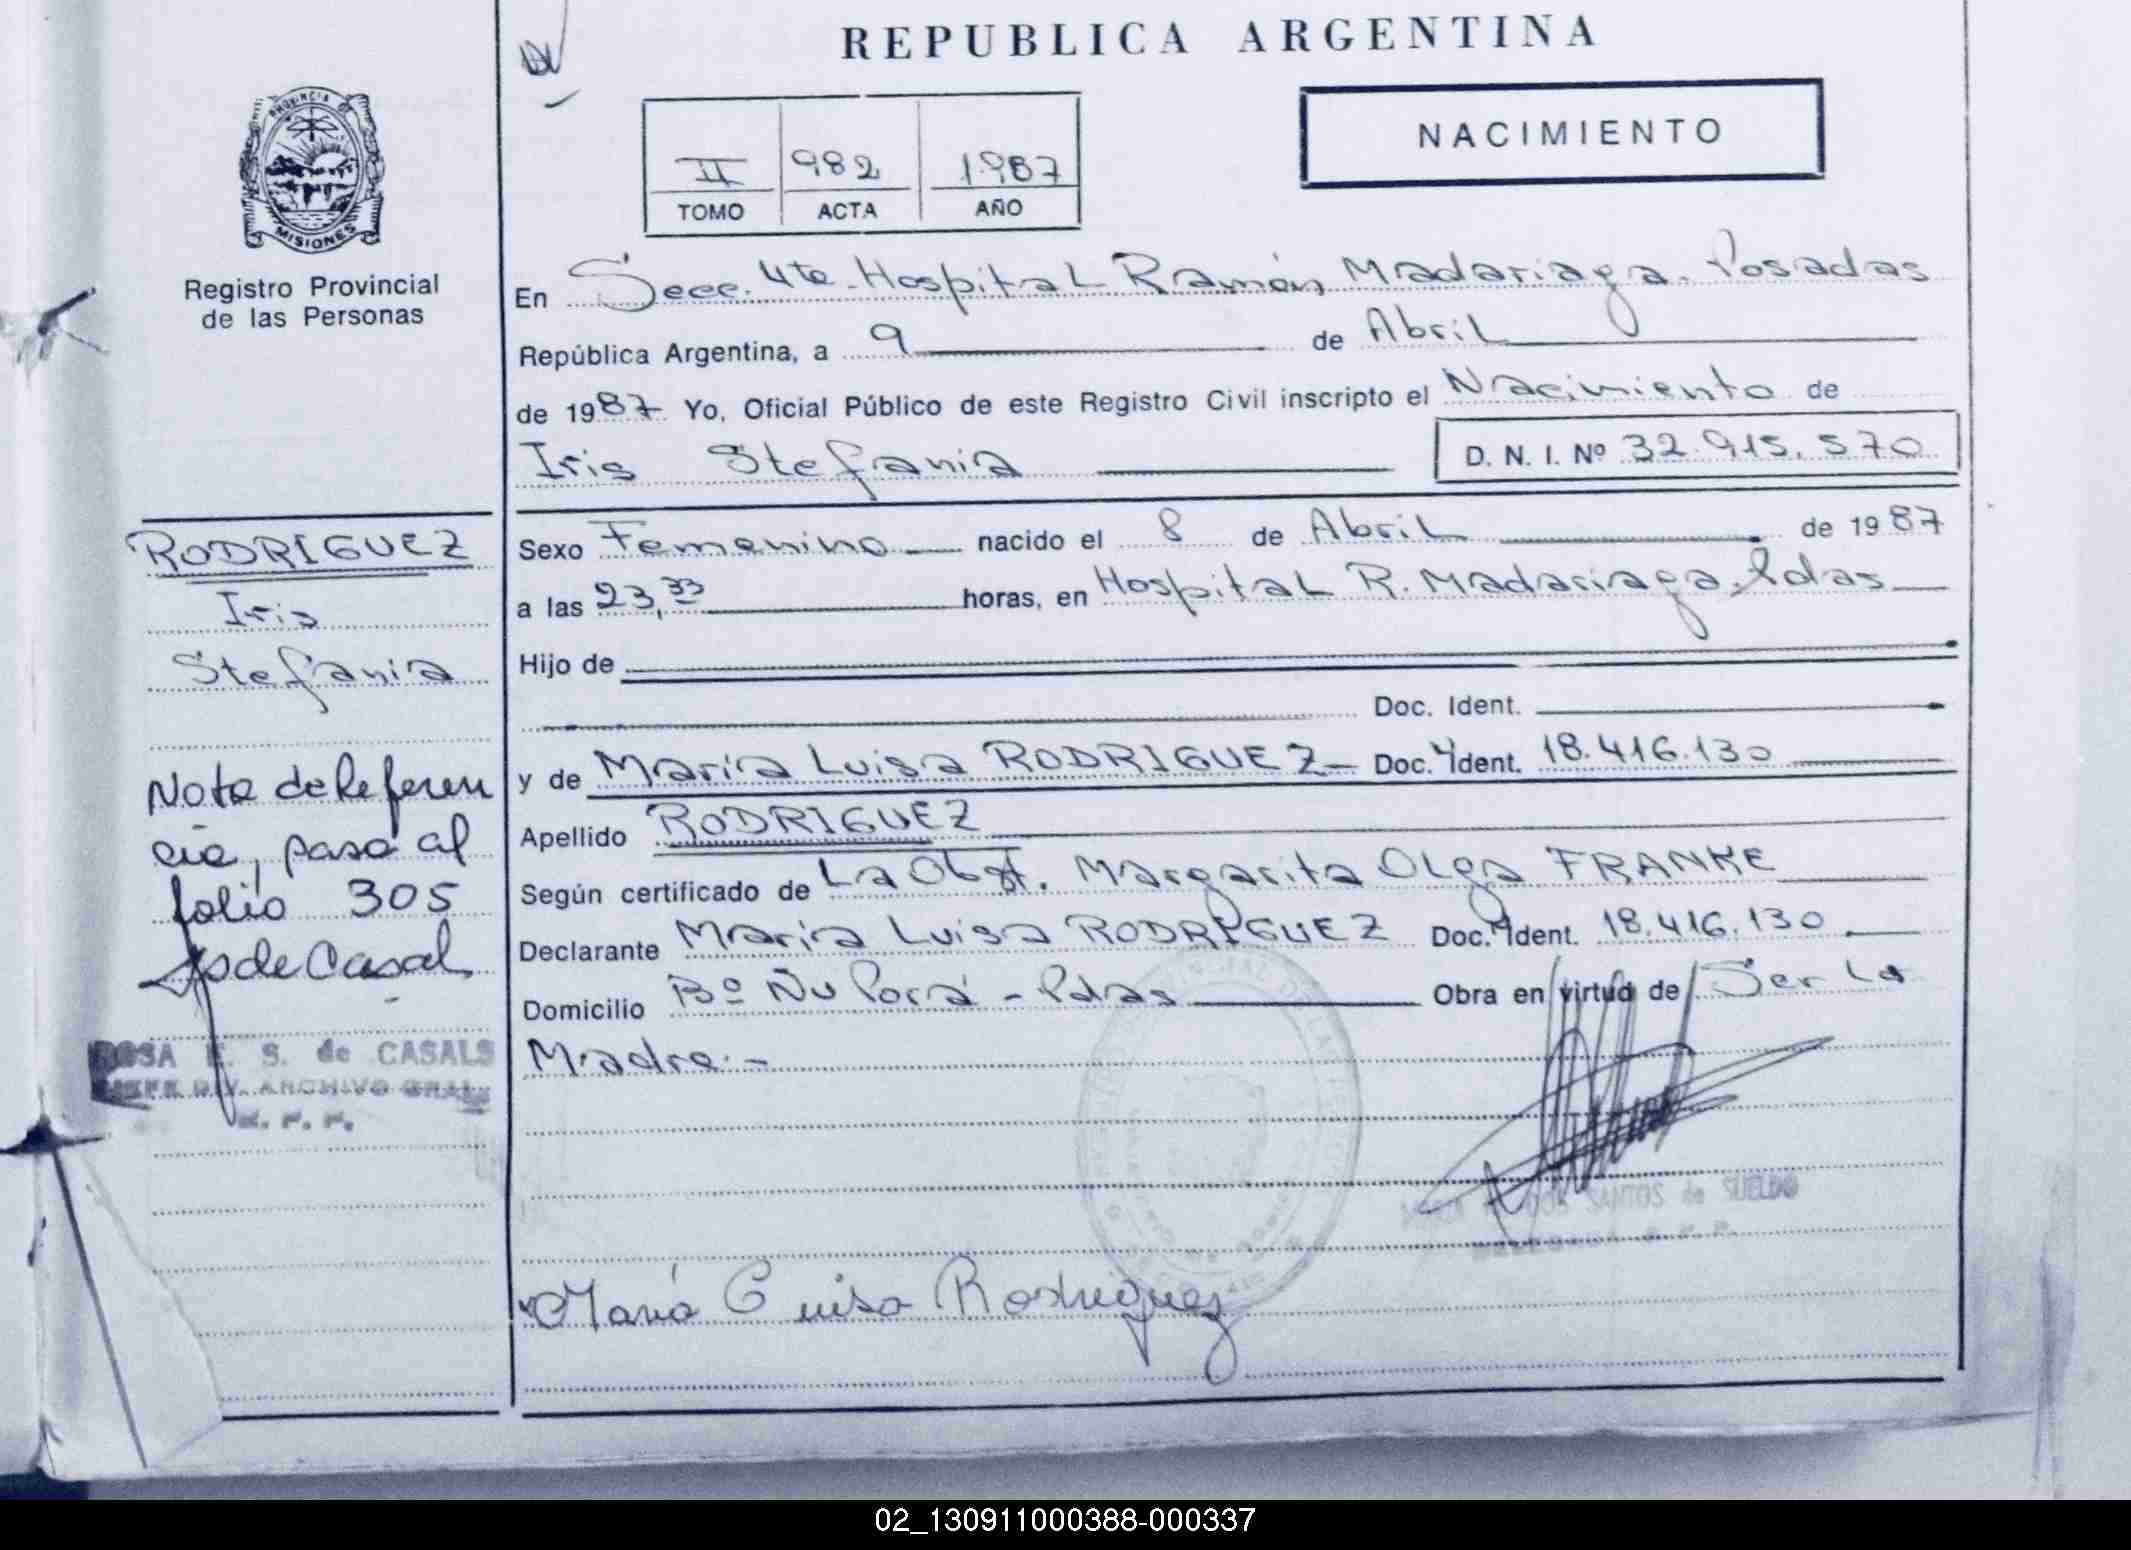 REPUBLICA ARGENTINA
NACIMIENTO
II 982 1987
TOMO ACTA AÑO
PROVINCIA DE
MISIONES
Registro Provincial
de las Personas
En Secc. 4te. Hospital Ramón Madariaga. Posadas
República Argentina, a 9 de Abril
de 1987 Yo, Oficial Público de este Registro Civil inscripto el Nacimiento de
Iris Stefania D. N. I. Nº 32.915.570
Sexo Femenino nacido el 8 de Abril de 1987
a las 23,33 horas, en Hospital R. Madariaga. Pdas
Hijo de
Doc. Ident.
y de María Luisa RODRIGUEZ Doc. Ident. 18.416.130
Apellido RODRIGUEZ
Según certificado de La Obst. Margarita Olga FRANKE
Declarante María Luisa RODRIGUEZ Doc. Ident. 18.416.130
Domicilio Bº Ñu Porá - Pdas Obra en virtud de Ser la
Madre.-
SANTOS de SUELDO
María Luisa Rodriguez
RODRIGUEZ
Iris
Stefania
Nota de Referen
cia, pasa al
folio 305
de Casal
ROSA E. S. de CASALS
JEFE DIV. ARCHIVO GRAL.
R. P. P.
02_130911000388-000337